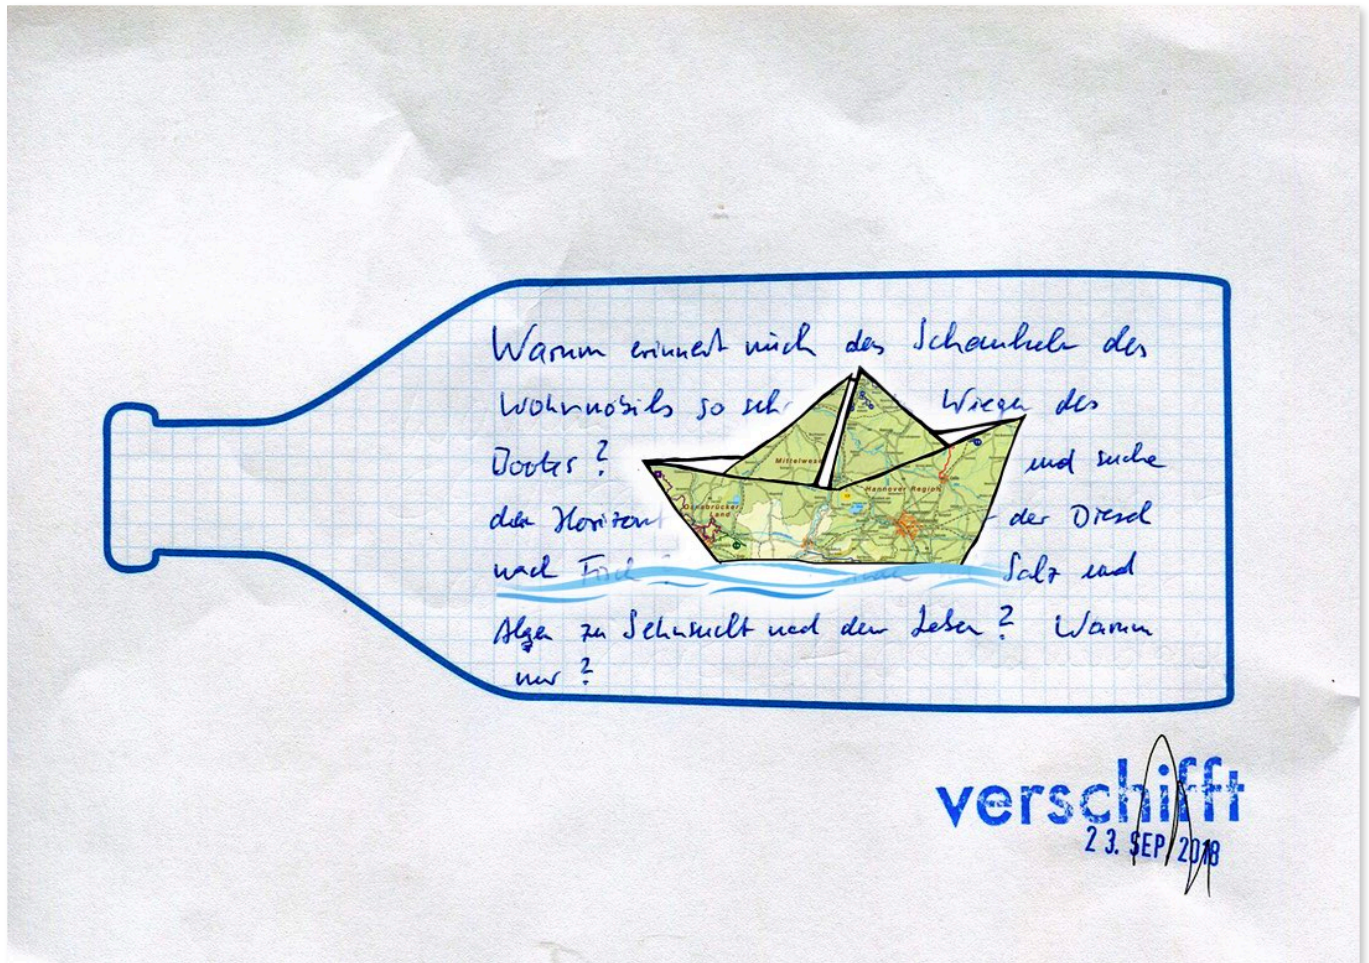 Warum erinnert mich das Schaukeln des
Wohnmobils so sehr Wiegen des
Bootes? und suche
den Horizont der Diesel
nach Fisch? Salz und
Algen zu Sehnsucht nach dem Leben? Warum
nur?
Mittelweser
Hannover Region
Osnabrücker
Land
verschifft
23. SEP 2018